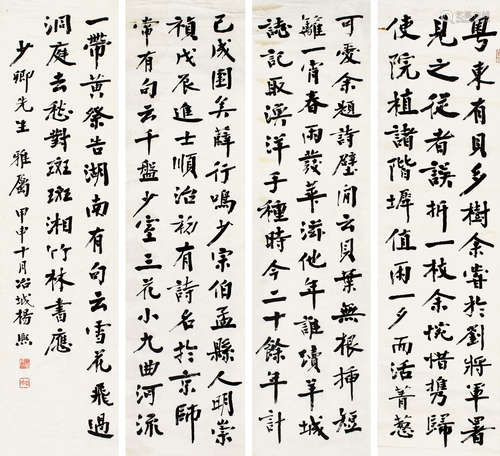 粤東有貝多樹余春於劉將軍署
見之從者誤折一枝余惋惜携歸
使院植諸階墀值雨一夕而活菁葱
可愛余題詩壁間云貝葉無根插短
籬一宵春雨發華滋他年誰續羊城
誌記取濱洋手種時今二十餘年計
已成圍矣薛行鳴少宗伯孟縣人明崇
禎戊辰進士順治初有詩名於京師
常有句云千盤少室三花小九曲河流
一帶黄祭告湖南有句云雪花飛過
洞庭去愁對斑斑湘竹林書應
少卿先生 雅屬 甲申十月冶城楊熙